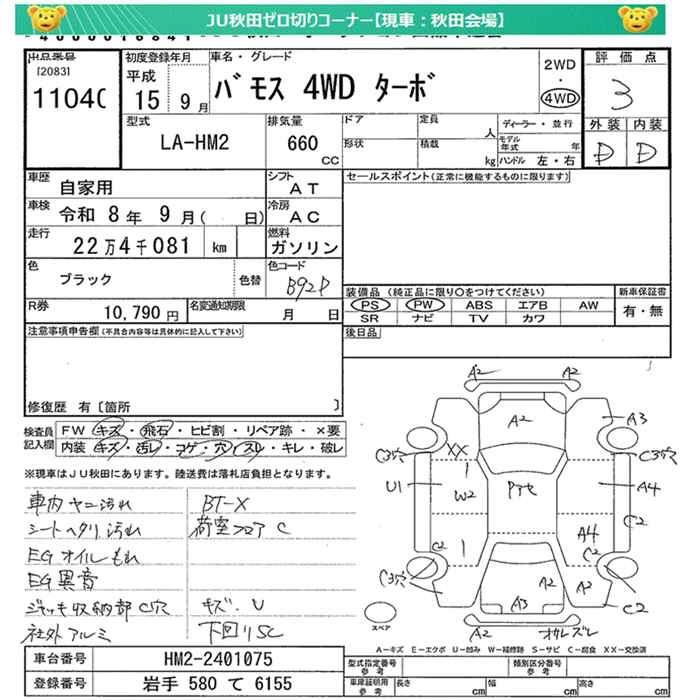 JU秋田ゼロ切りコーナー【現車：秋田会場】
出品番号
[2083]
1104
初度登録年月
平成
15年9月
車名・グレード
バモス 4WD ターボ
2WD
・
4WD
評価点
3
型式
LA-HM2
排気量
660
CC
ドア
定員
人
形状
積載
kg
ディーラー・並行
モデル年式
年
ハンドル 左・右
外装 内装
D D
車歴
自家用
シフト
AT
セールスポイント(正常に機能するものに限ります)
車検
令和 8年 9月( 日)
冷房
AC
走行
22万4千081 km
燃料
ガソリン
色
ブラック
色替
色コード
B92P
R券
10,790円
名変通知期限
月 日
装備品 (純正品に限り○をつけてください)
PS PW ABS エアB AW
SR ナビ TV カワ
新車保証書
有・無
注意事項申告欄(不具合内容等は具体的に記入して下さい)
後日品
修復歴 有〔箇所 〕
検査員
記入欄
FW キズ・飛石・ヒビ割・リペア跡・×要
内装 キズ・汚レ・コゲ・穴・スレ・キレ・破レ
※現車はJU秋田にあります。陸送費は落札店負担となります。
車内ヤニ汚れ
BT-X
シートヘタリ汚れ
荷室フロアC
EGオイルもれ
EG異音
ジャッキ収納部C穴
キズ・U
社外アルミ
下回りSC
A2 A2
A2
A3
C3穴
XX
C3穴
U1
W2
A4
C2
A4
C2
C2
C3穴
A2
A2
A3
C2
A2
スペア
A-キズ E-エクボ U-凹み W-補修跡 S-サビ C-腐食 XX-交換済
車台番号
HM2-2401075
登録番号
岩手 580 て 6155
型式指定番号
参考
類別区分番号
参考
車庫証明用
参考
長さ
cm
幅
cm
高さ
cm